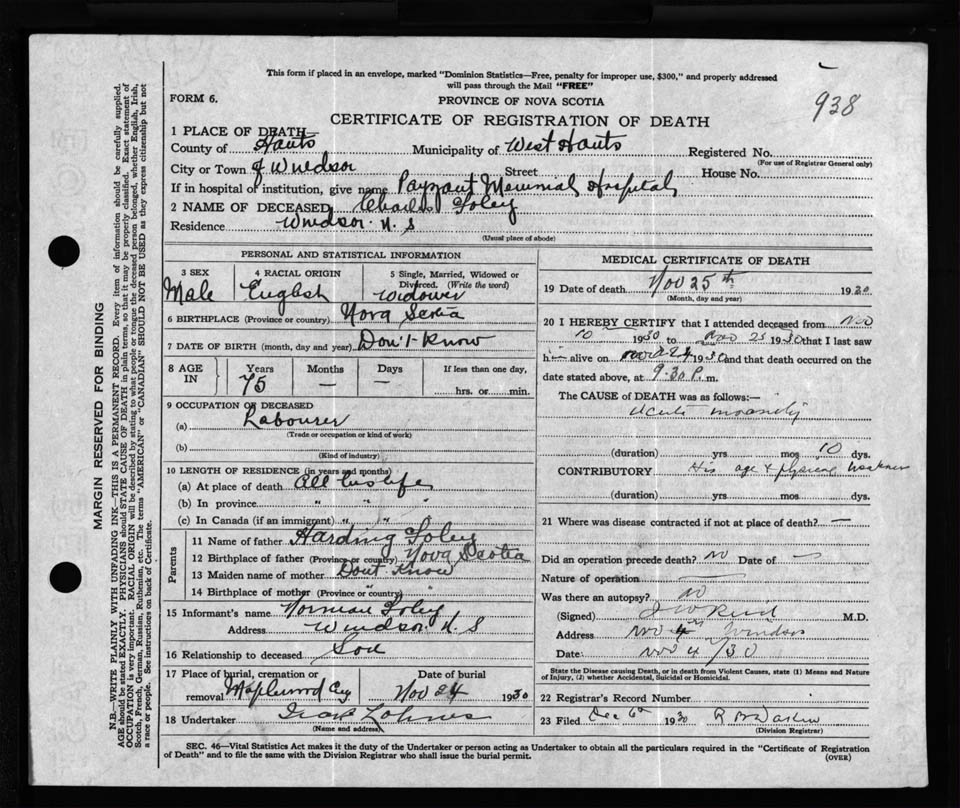 This form if placed in an envelope, marked "Dominion Statistics—Free, penalty for improper use, $300," and properly addressed
will pass through the Mail "FREE"
938
FORM 6.
PROVINCE OF NOVA SCOTIA
CERTIFICATE OF REGISTRATION OF DEATH
1 PLACE OF DEATH
County of Hants Municipality of West Hants Registered No.
(For use of Registrar General only)
City or Town of Windsor Street House No.
If in hospital or institution, give name Payzant Memorial Hospital
2 NAME OF DECEASED Charles Foley
Residence Windsor N. S
(Usual place of abode)
PERSONAL AND STATISTICAL INFORMATION
3 SEX 4 RACIAL ORIGIN 5 Single, Married, Widowed or
Divorced. (Write the word)
Male English Widower
6 BIRTHPLACE (Province or country) Nova Scotia
7 DATE OF BIRTH (month, day and year) Don't Know
8 AGE IN Years Months Days If less than one day,
75 — — hrs. or min.
9 OCCUPATION OF DECEASED
(a) Labourer
(Trade or occupation or kind of work)
(b)
(Kind of industry)
10 LENGTH OF RESIDENCE (in years and months)
(a) At place of death All his life
(b) In province " "
(c) In Canada (if an immigrant) " " "
Parents
11 Name of father Harding Foley
12 Birthplace of father (Province or country) Nova Scotia
13 Maiden name of mother Dont Know
14 Birthplace of mother (Province or country) "
15 Informant's name Norman Foley
Address Windsor N. S
16 Relationship to deceased Son
17 Place of burial, cremation or
removal Maplewood Cey Nov 24 1930
18 Undertaker Lohnes
(Name and address)
MEDICAL CERTIFICATE OF DEATH
19 Date of death Nov 25th 1930
(Month, day and year)
20 I HEREBY CERTIFY that I attended deceased from Nov
10 1930 to Nov 25 1930 that I last saw
h alive on Nov 24 1930 and that death occurred on
date stated above, at 9.30 P. m.
The CAUSE of DEATH was as follows:
Acute insanity
(duration) yrs mos 10 dys.
CONTRIBUTORY His age & physical weakness
(duration) yrs mos dys.
21 Where was disease contracted if not at place of death? —
Did an operation precede death? No Date of —
Nature of operation —
Was there an autopsy? No
(Signed) J W Reid M.D.
Address Windsor
Date Nov 4 /30
State the Disease causing Death, or in death from Violent Causes, state (1) Means and Nature
of Injury, (2) whether Accidental, Suicidal or Homicidal.
22 Registrar's Record Number
23 Filed Dec 6th 1930
(Division Registrar)
SEC. 46—Vital Statistics Act makes it the duty of the Undertaker or person acting as Undertaker to obtain all the particulars required in the "Certificate of Registration
of Death" and to file the same with the Division Registrar who shall issue the burial permit.
(OVER)
MARGIN RESERVED FOR BINDING
N.B.—WRITE PLAINLY WITH UNFADING INK—THIS IS A PERMANENT RECORD. Every item of information should be carefully supplied.
AGE should be stated EXACTLY. PHYSICIANS should STATE CAUSE OF DEATH in plain terms, so that it may be properly classified. Exact statement of
OCCUPATION is very important. RACIAL ORIGIN will be described by stating to what people or tongue the deceased person belonged, whether English, Irish,
Scotch, French, German, Russian, Ruthenian, etc. The terms "AMERICAN" or "CANADIAN" SHOULD NOT BE USED as they express citizenship but not
a race or people. See instructions on back of Certificate.